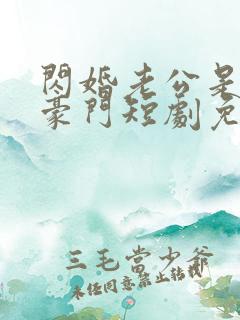 閃婚老公是
豪門短劇免
三毛當少爺
同意禁止